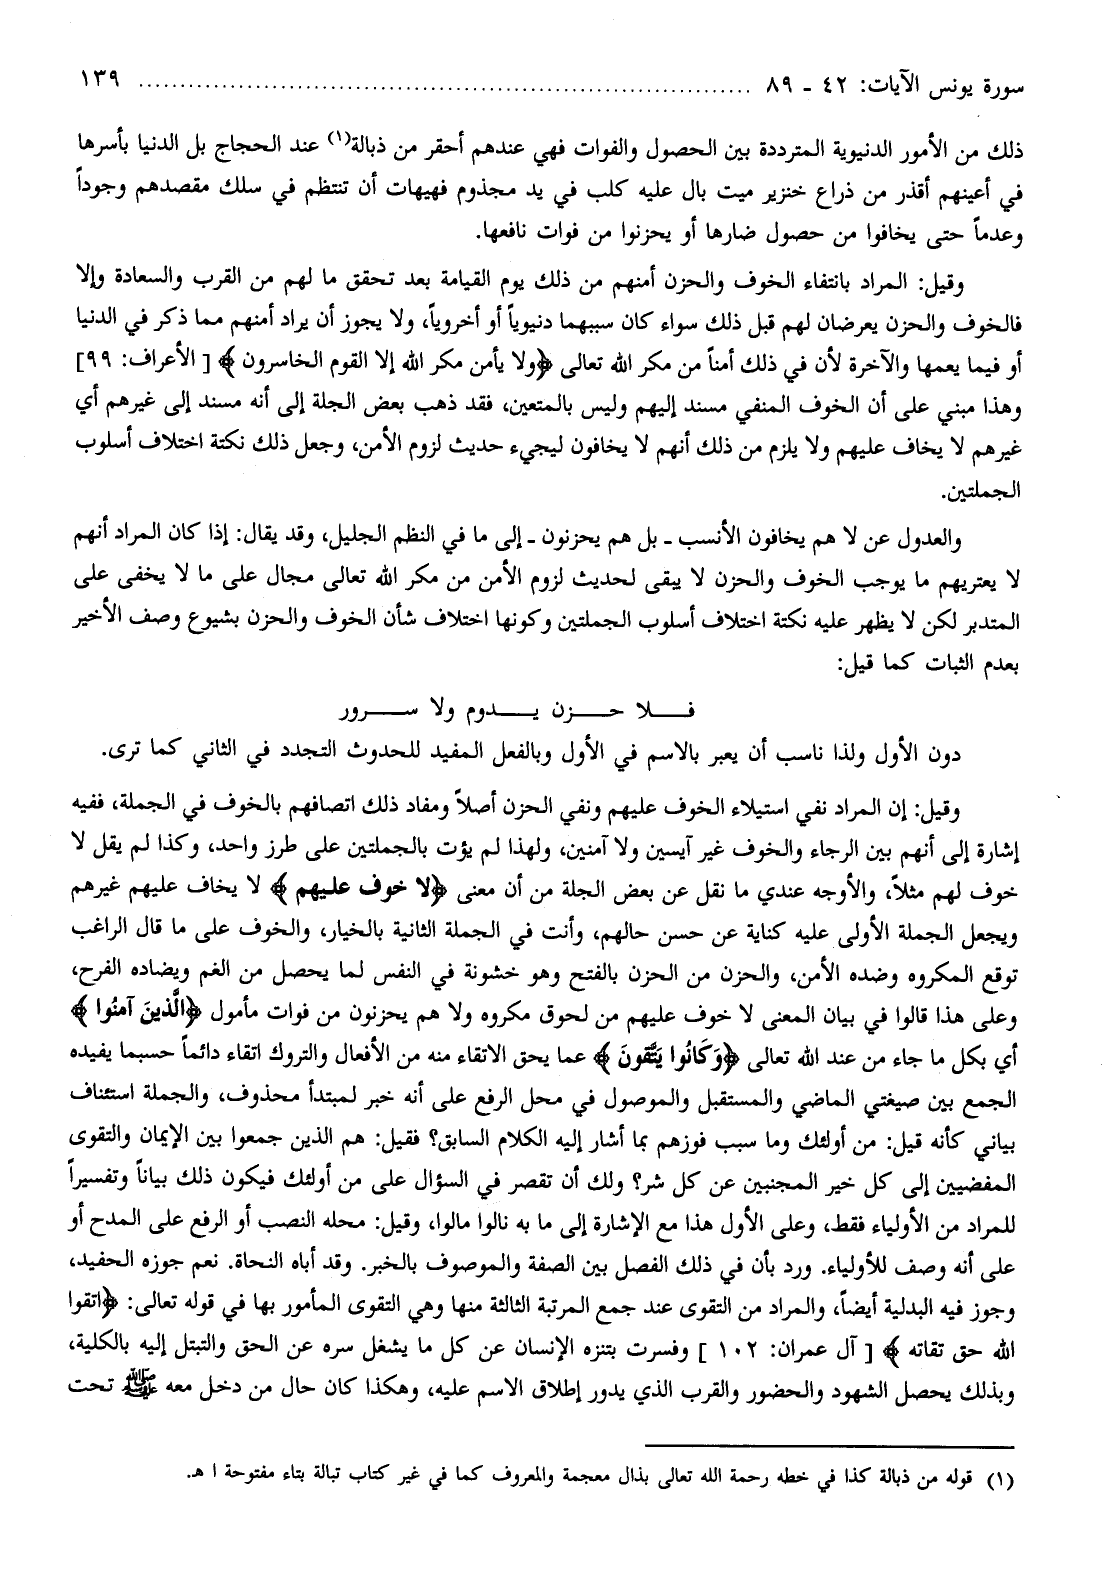 سورة يونس الآيات: ٤٢ - ٨٩ ........................................................................... ١٣٩
ذلك من الأمور الدنيوية المترددة بين الحصول والفوات فهي عندهم أحقر من ذبالة(١) عند الحجاج بل الدنيا بأسرها
في أعينهم أقذر من ذراع خنزير ميت بال عليه كلب في يد مجذوم فهيهات أن تنتظم في سلك مقصدهم وجوداً
وعدماً حتى يخافوا من حصول ضارها أو يحزنوا من فوات نافعها.
وقيل: المراد بانتفاء الخوف والحزن أمنهم من ذلك يوم القيامة بعد تحقق ما لهم من القرب والسعادة وإلا
فالخوف والحزن يعرضان لهم قبل ذلك سواء كان سببهما دنيوياً أو أخروياً، ولا يجوز أن يراد أمنهم مما ذكر في الدنيا
أو فيما يعمها والآخرة لأن في ذلك أمناً من مكر الله تعالى ﴿ولا يأمن مكر الله إلا القوم الخاسرون﴾ [الأعراف: ٩٩]
وهذا مبني على أن الخوف المنفي مسند إليهم وليس بالمتعين، فقد ذهب بعض الجلة إلى أنه مسند إلى غيرهم أي
غيرهم لا يخاف عليهم ولا يلزم من ذلك أنهم لا يخافون ليجيء حديث لزوم الأمن، وجعل ذلك نكتة اختلاف أسلوب
الجملتين.
والعدول عن لا هم يخافون الأنسب ـ بل هم يحزنون ـ إلى ما في النظم الجليل، وقد يقال: إذا كان المراد أنهم
لا يعتريهم ما يوجب الخوف والحزن لا يبقى لحديث لزوم الأمن من مكر الله تعالى مجال على ما لا يخفى على
المتدبر لكن لا يظهر عليه نكتة اختلاف أسلوب الجملتين وكونها اختلاف شأن الخوف والحزن بشيوع وصف الأخير
بعدم الثبات كما قيل:
فـــلا حـــزن يـــدوم ولا ســـرور
دون الأول ولذا ناسب أن يعبر بالاسم في الأول وبالفعل المفيد للحدوث التجدد في الثاني كما ترى.
وقيل: إن المراد نفي استيلاء الخوف عليهم ونفي الحزن أصلاً ومفاد ذلك اتصافهم بالخوف في الجملة، ففيه
إشارة إلى أنهم بين الرجاء والخوف غير آيسين ولا آمنين، ولهذا لم يؤت بالجملتين على طرز واحد، وكذا لم يقل لا
خوف لهم مثلاً، والأوجه عندي ما نقل عن بعض الجلة من أن معنى ﴿لا خوف عليهم﴾ لا يخاف عليهم غيرهم
ويجعل الجملة الأولى عليه كناية عن حسن حالهم، وأنت في الجملة الثانية بالخيار، والخوف على ما قال الراغب
توقع المكروه وضده الأمن، والحزن من الحزن بالفتح وهو خشونة في النفس لما يحصل من الغم ويضاده الفرح،
وعلى هذا قالوا في بيان المعنى لا خوف عليهم من لحوق مكروه ولا هم يحزنون من فوات مأمول ﴿الَّذينَ آمنُوا﴾
أي بكل ما جاء من عند الله تعالى ﴿وَكَانُوا يَتَّقونَ﴾ عما يحق الاتقاء منه من الأفعال والتروك اتقاء دائماً حسبما يفيده
الجمع بين صيغتي الماضي والمستقبل والموصول في محل الرفع على أنه خبر لمبتدأ محذوف، والجملة استئناف
بياني كأنه قيل: من أولئك وما سبب فوزهم بما أشار إليه الكلام السابق؟ فقيل: هم الذين جمعوا بين الإيمان والتقوى
المفضيين إلى كل خير المجنبين عن كل شر؟ ولك أن تقصر في السؤال على من أولئك فيكون ذلك بياناً وتفسيراً
للمراد من الأولياء فقط، وعلى الأول هذا مع الإشارة إلى ما به نالوا مالوا، وقيل: محله النصب أو الرفع على المدح أو
على أنه وصف للأولياء. ورد بأن في ذلك الفصل بين الصفة والموصوف بالخبر. وقد أباه النحاة. نعم جوزه الحفيد،
وجوز فيه البدلية أيضاً، والمراد من التقوى عند جمع المرتبة الثالثة منها وهي التقوى المأمور بها في قوله تعالى: ﴿اتقوا
الله حق تقاته﴾ [آل عمران: ١٠٢] وفسرت بتنزه الإنسان عن كل ما يشغل سره عن الحق والتبتل إليه بالكلية،
وبذلك يحصل الشهود والحضور والقرب الذي يدور إطلاق الاسم عليه، وهكذا كان حال من دخل معه ﷺ تحت
(١) قوله من ذبالة كذا في خطه رحمة الله تعالى بذال معجمة والمعروف كما في غير كتاب تبالة بتاء مفتوحة ا هـ.